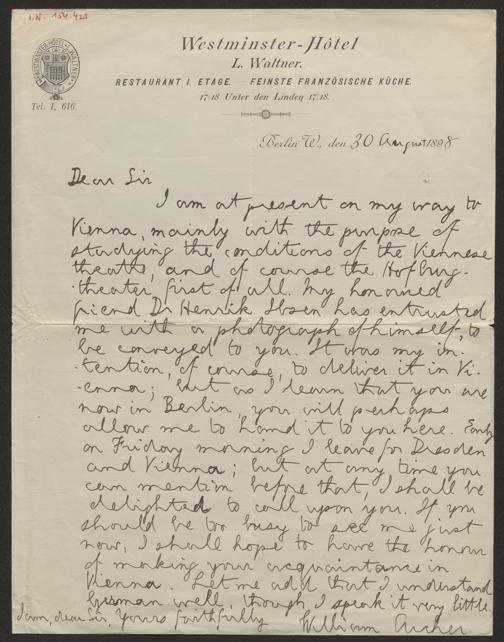 I.N. 154.423
WESTMINSTER-HÔTEL L. WALTNER
Tel. I, 616.
Westminster-Hôtel
L. Waltner.
RESTAURANT I. ETAGE. FEINSTE FRANZÖSISCHE KÜCHE.
17/18 Unter den Linden 17/18.
Berlin W., den 30 August 1898
Dear Sir
I am at present on my way to
Vienna, mainly with the purpose of
studying the conditions of the Viennese
theatre, and of course the Hofburg-
-theater, first of all. My honoured
friend Dr Henrik Ibsen has entrusted
me with a photograph of himself, to
be conveyed to you. It was my in-
-tention, of course, to deliver it in Vi-
-enna; but as I learn that you are
now in Berlin, you will perhaps
allow me to hand it to you here. Early
on Friday morning I leave for Dresden
and Vienna; but at any time you
can mention before that, I shall be
delighted to call upon you. If you
should be too busy to see me just
now, I shall hope to have the honour
of making your acquaintance in
Vienna. Let me add that I understand
German well, though I speak it very little.
I am, dear Sir, Yours faithfully William Archer